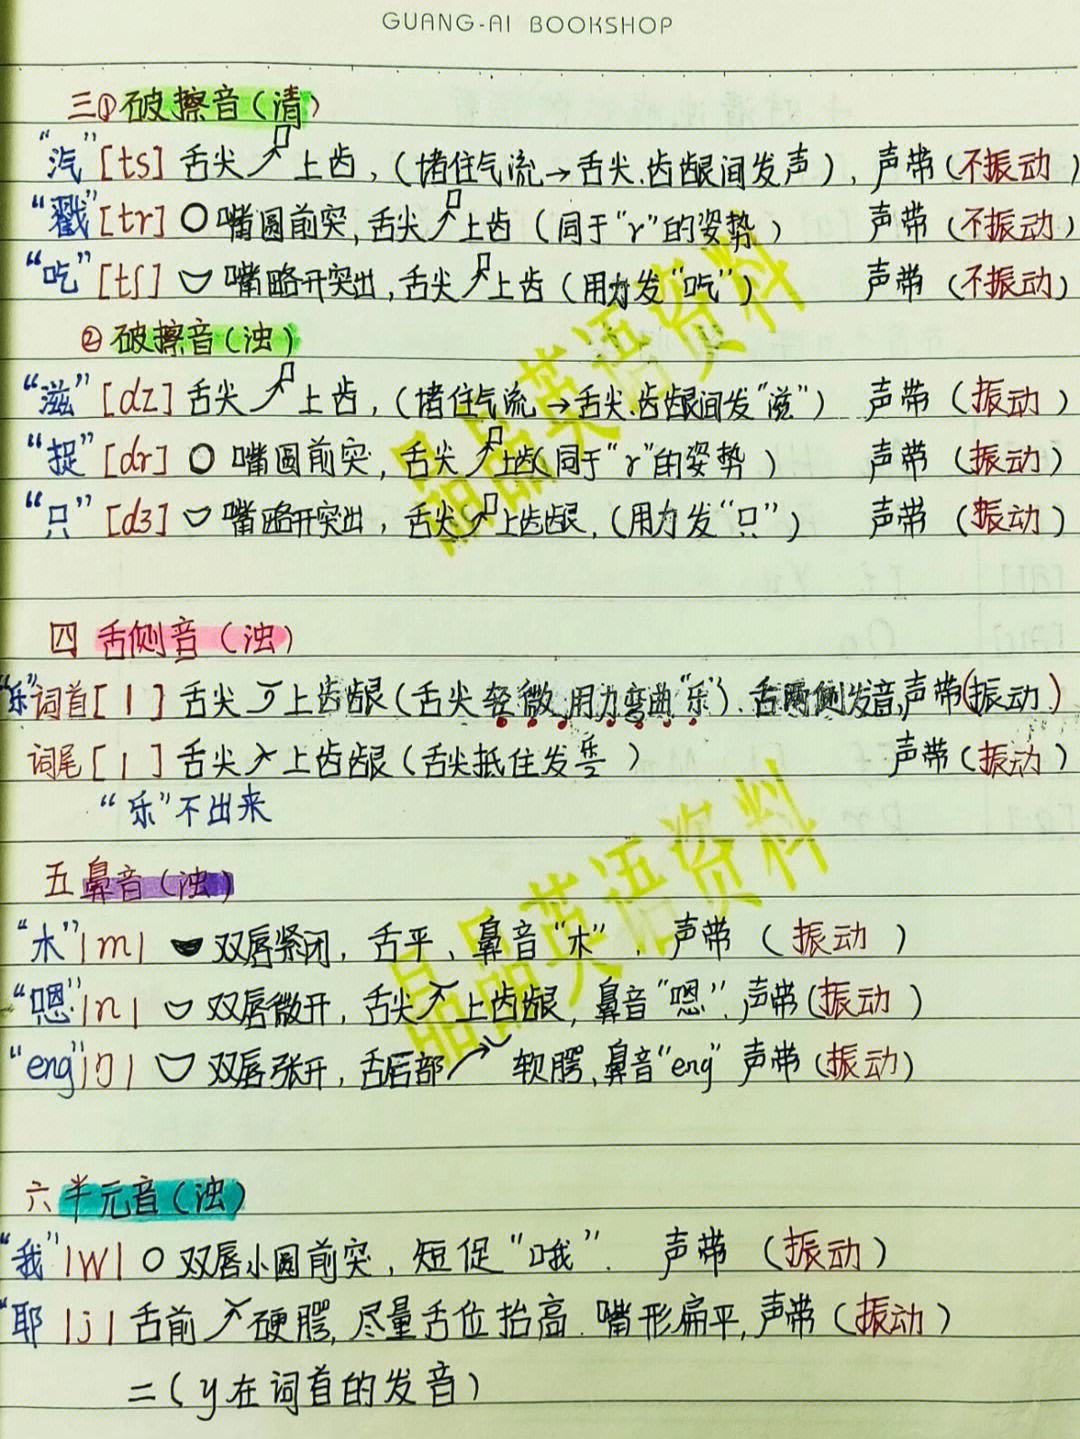 GUANG-AI BOOKSHOP
三①破擦音(清)
“汽”[ts] 舌尖↗上齿,(堵住气流→舌尖.齿龈间发声),声带(不振动)
“戳”[tr] 嘴圆前突,舌尖↗上齿(同于“r”的姿势) 声带(不振动)
“吃”[tʃ] 嘴略开突出,舌尖↗上齿(用力发“吃”) 声带(不振动)
②破擦音(浊)
“滋”[dz] 舌尖↗上齿,(堵住气流→舌尖.齿龈间发“滋”) 声带(振动)
“捉”[dr] 嘴圆前突,舌尖↗上齿(同于“r”的姿势) 声带(振动)
“只”[dʒ] 嘴略开突出,舌尖↗上齿龈,(用力发“只”) 声带(振动)
四 舌侧音(浊)
“乐”词首[l] 舌尖上齿龈(舌尖轻微,用力弯曲“乐”).舌两侧发音,声带(振动)
词尾[l] 舌尖上齿龈(舌尖抵住发) 声带(振动)
“乐”不出来
五鼻音(浊)
“木”|m| 双唇紧闭,舌平、鼻音“木”.声带(振动)
“嗯”|n| 双唇微开,舌尖上齿龈,鼻音“嗯”.声带(振动)
“eng”|ŋ| 双唇张开,舌后部↗软腭,鼻音“eng” 声带(振动)
六半元音(浊)
“我”|w| 双唇小圆前突,短促“哦”. 声带(振动)
“耶 |j| 舌前↗硬腭,尽量舌位抬高.嘴形扁平,声带(振动)
=(y在词首的发音)
晶晶英语资料
晶晶英语资料